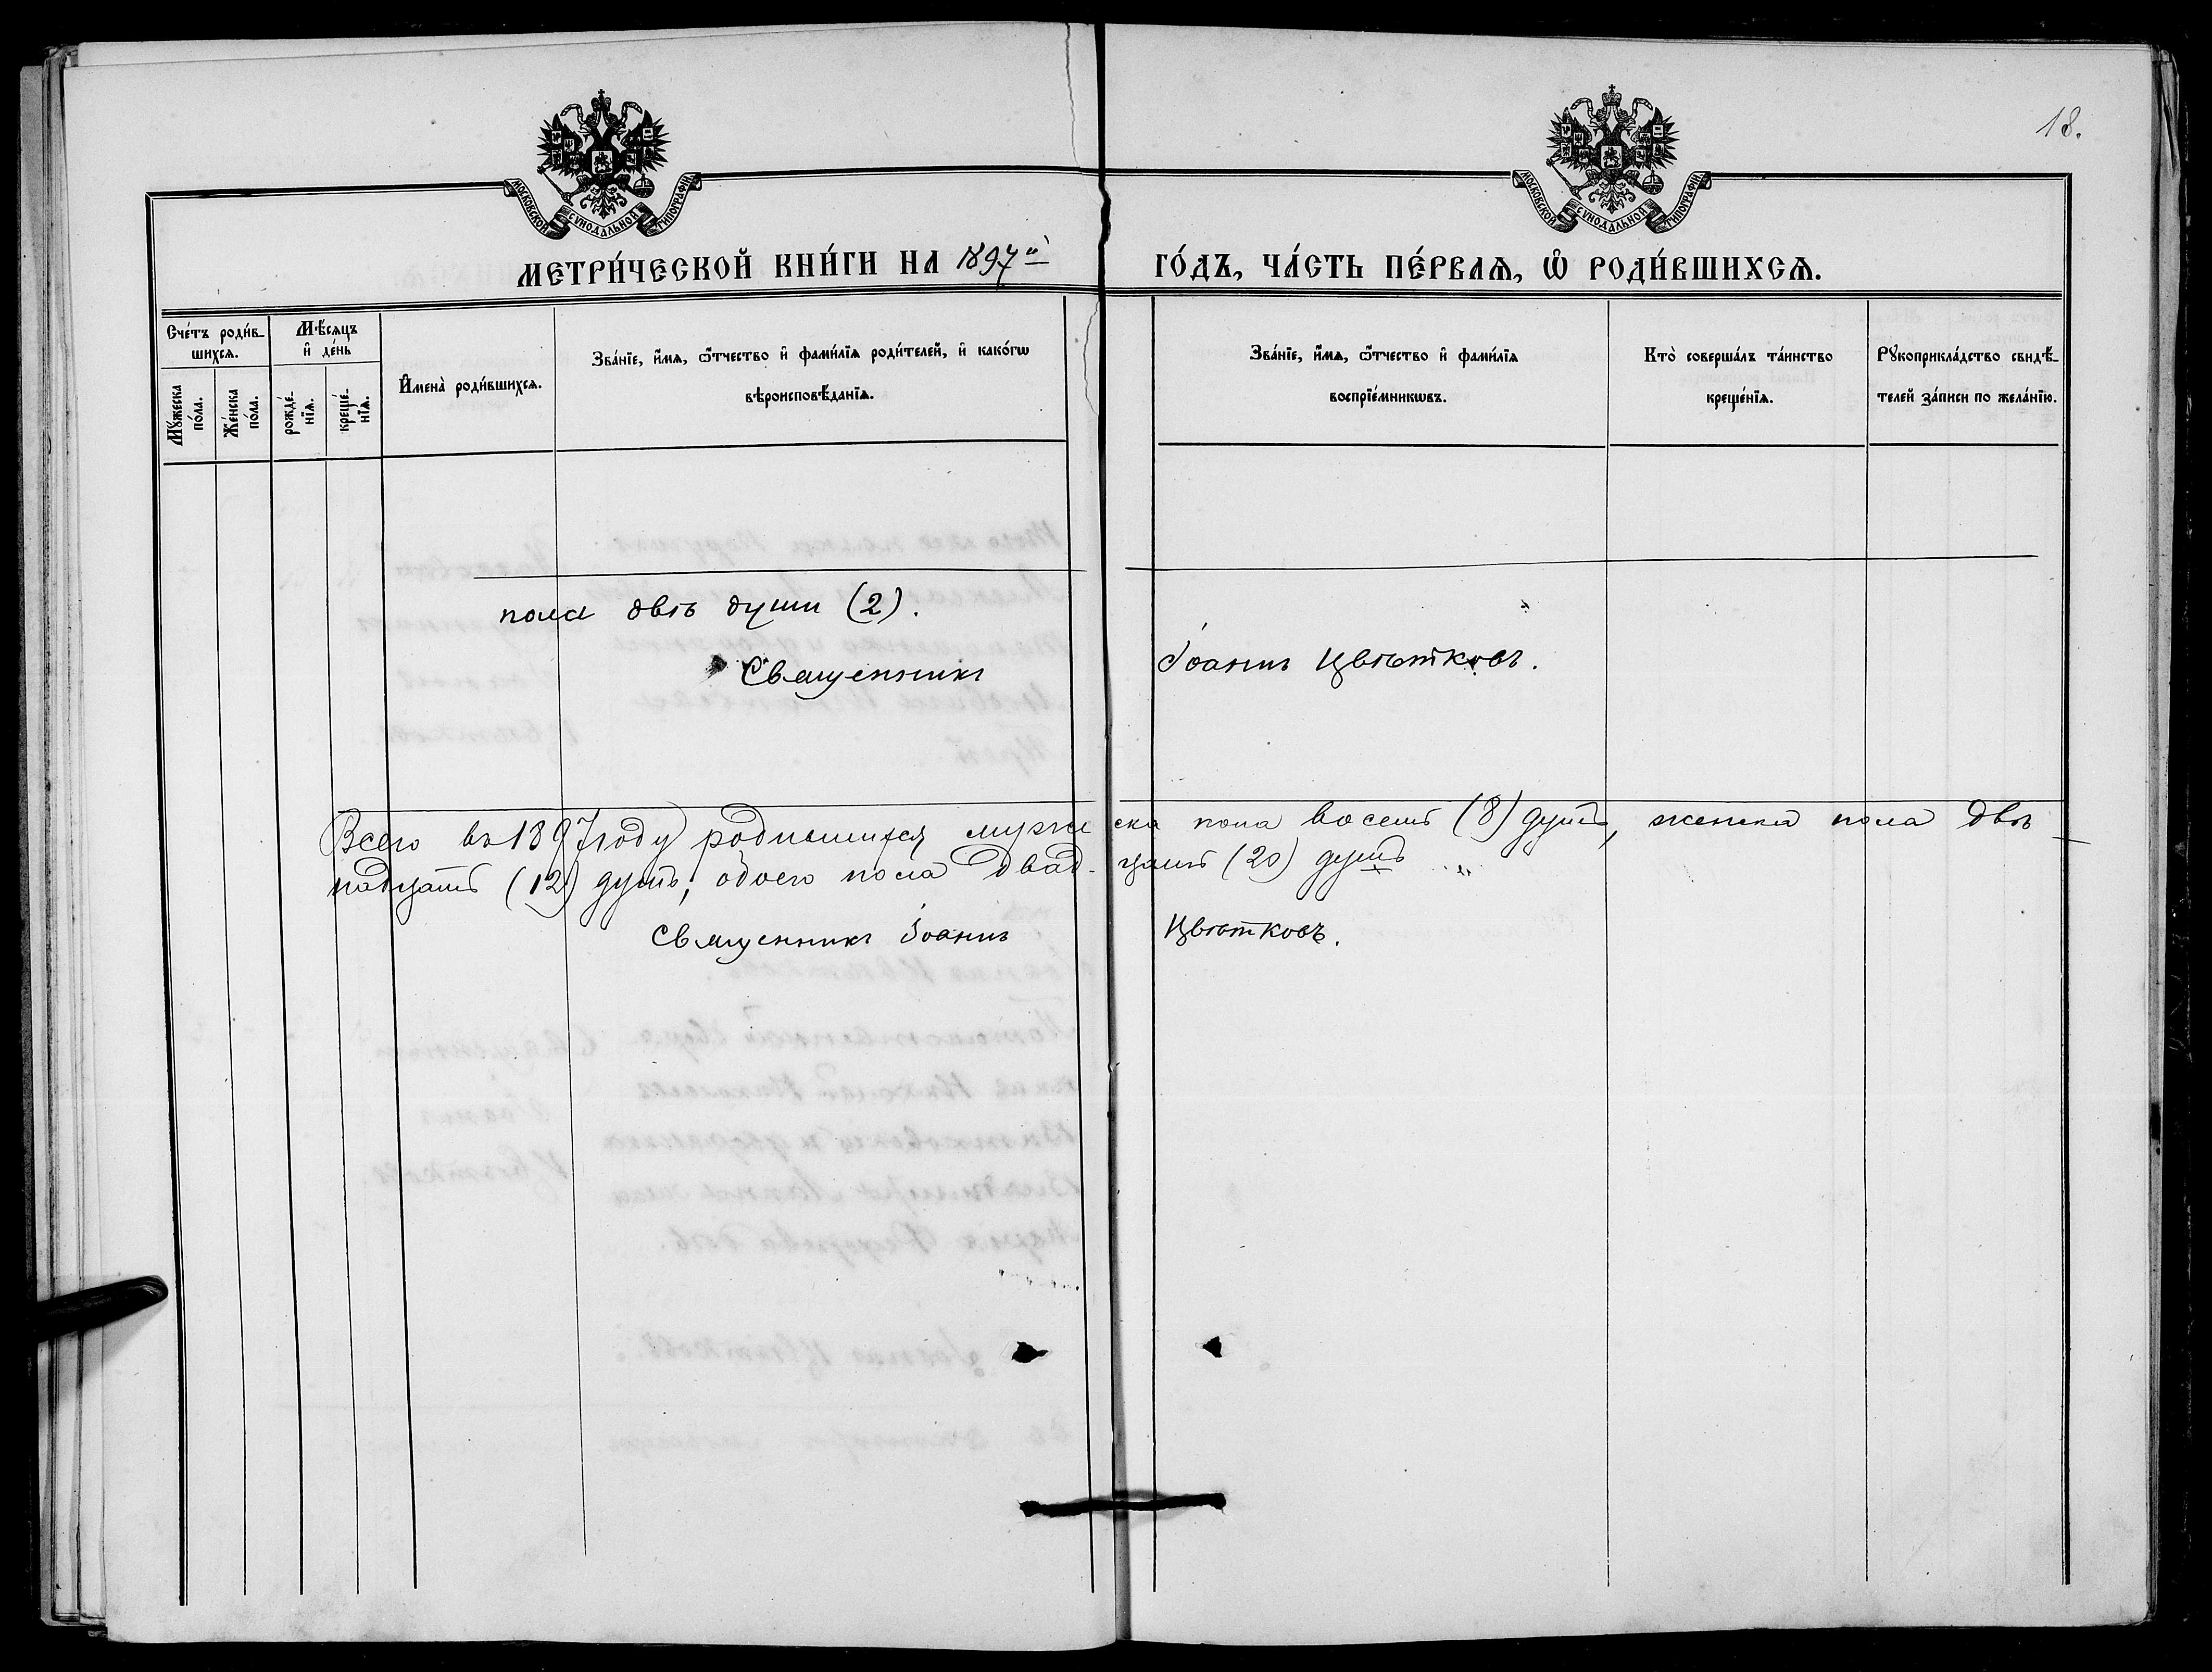 18.
МОСКОВСКОЙ СѴНОДАЛЬНОЙ ТИПОГРАФІИ
МОСКОВСКОЙ СѴНОДАЛЬНОЙ ТИПОГРАФІИ
МЕТРИ́ЧЕСКОЙ КНИ́ГИ НА 1897й ГО́ДЪ, ЧА́СТЬ ПЕ́РВАѦ, Ѡ РОДИ́ВШИХСѦ.
Сче́тъ роди́в-
шихсѧ.
Мꙋ́жеска
по́ла.
Же́нска
по́ла.
Мѣ́сѧцъ
и҆ де́нь
рожде́-
нїѧ.
креще́-
нїѧ.
И҆мена̀ роди́вшихсѧ.
Зва́нїе, и҆́мѧ, ѻ҆́тчество и҆ фами́лїѧ роди́телей, и҆ како́гѡ
вѣроисповѣ́данїѧ.
Зва́нїе, и҆́мѧ, ѻ҆́тчество и҆ фами́лїѧ
воспрїе́мникѡвъ.
Кто̀ соверша́лъ та́инство
креще́нїѧ.
Рꙋкоприкла́дство свидѣ́-
телей за́писи по жела́нїю.
пола двѣ души (2).
Священникъ Іоаннъ Цвѣтковъ.
Всего въ 1897 году родившихся мужеска пола восемь (8) душъ, женска пола двѣ-
надцать (12) душъ; обоего пола двад-цать (20) душъ
Священникъ Іоаннъ Цвѣтковъ.